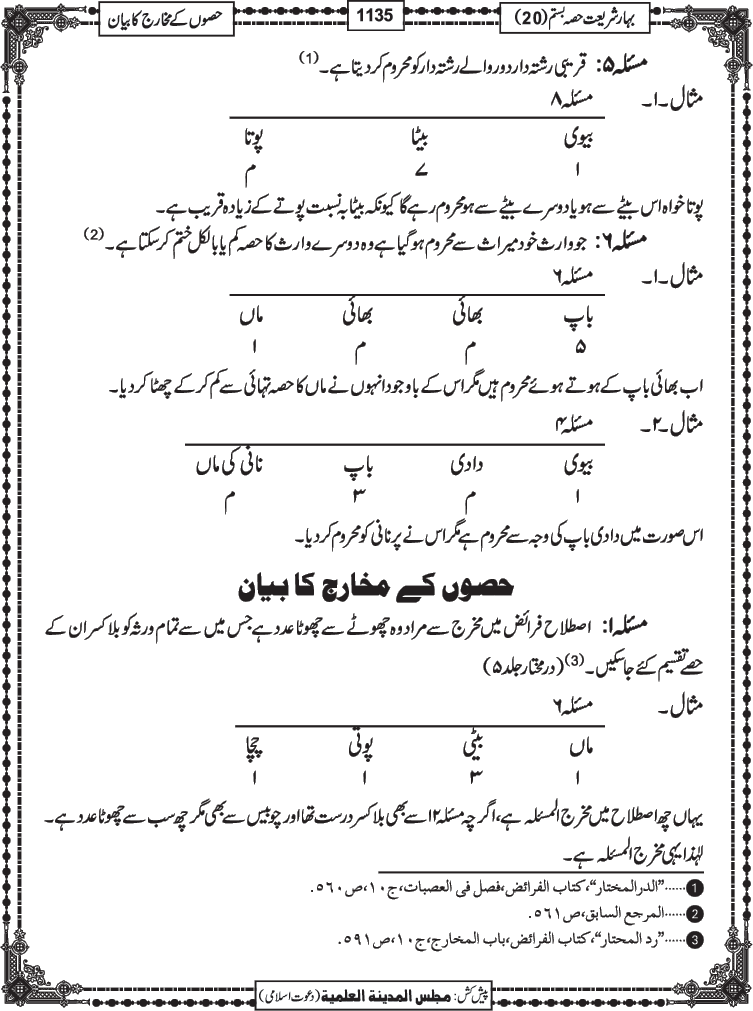 بہار شریعت حصہ بستم (20) 1135 حصوں کے مخارج کا بیان
مسئلہ ۵: قریبی رشتہ دار دور والے رشتہ دار کو محروم کر دیتا ہے۔(1)
مثال ۔۱۔ مسئلہ ۸
بیوی بیٹا پوتا
۱ ۷ م
پوتا خواہ اس بیٹے سے ہو یا دوسرے بیٹے سے ہو محروم رہے گا کیونکہ بیٹا بہ نسبت پوتے کے زیادہ قریب ہے۔
مسئلہ ۶: جو وارث خود میراث سے محروم ہو گیا ہے وہ دوسرے وارث کا حصہ کم یا بالکل ختم کر سکتا ہے۔(2)
مثال ۔۱۔ مسئلہ ۶
باپ بھائی بھائی ماں
۵ م م ۱
اب بھائی باپ کے ہوتے ہوئے محروم ہیں مگر اس کے باوجود انہوں نے ماں کا حصہ تہائی سے کم کر کے چھٹا کر دیا۔
مثال ۔۲۔ مسئلہ ۴
بیوی دادی باپ نانی کی ماں
۱ م ۳ م
اس صورت میں دادی باپ کی وجہ سے محروم ہے مگر اس نے پر نانی کو محروم کر دیا۔
حصوں کے مخارج کا بیان
مسئلہ ۱: اصطلاح فرائض میں مخرج سے مراد وہ چھوٹے سے چھوٹا عدد ہے جس میں سے تمام ورثہ کو بلا کسر ان کے
حصے تقسیم کئے جا سکیں۔(3) (در مختار جلد ۵)
مثال ۔ مسئلہ ۶
ماں بیٹی پوتی چچا
۱ ۳ ۱ ۱
یہاں چھ اصطلاح میں مخرج المسئلہ ہے، اگرچہ مسئلہ ۱۲ سے بھی بلا کسر درست تھا اور چوبیس سے بھی مگر چھ سب سے چھوٹا عدد ہے۔
لہٰذا یہی مخرج المسئلہ ہے۔
1......”الدرالمختار“، کتاب الفرائض، فصل فی العصبات، ج١٠، ص٥٦٠.
2......المرجع السابق، ص٥٦١.
3......”رد المحتار“، کتاب الفرائض، باب المخارج، ج١٠، ص٥٩١.
پیش کش: مجلس المدینة العلمیة (دعوت اسلامی)